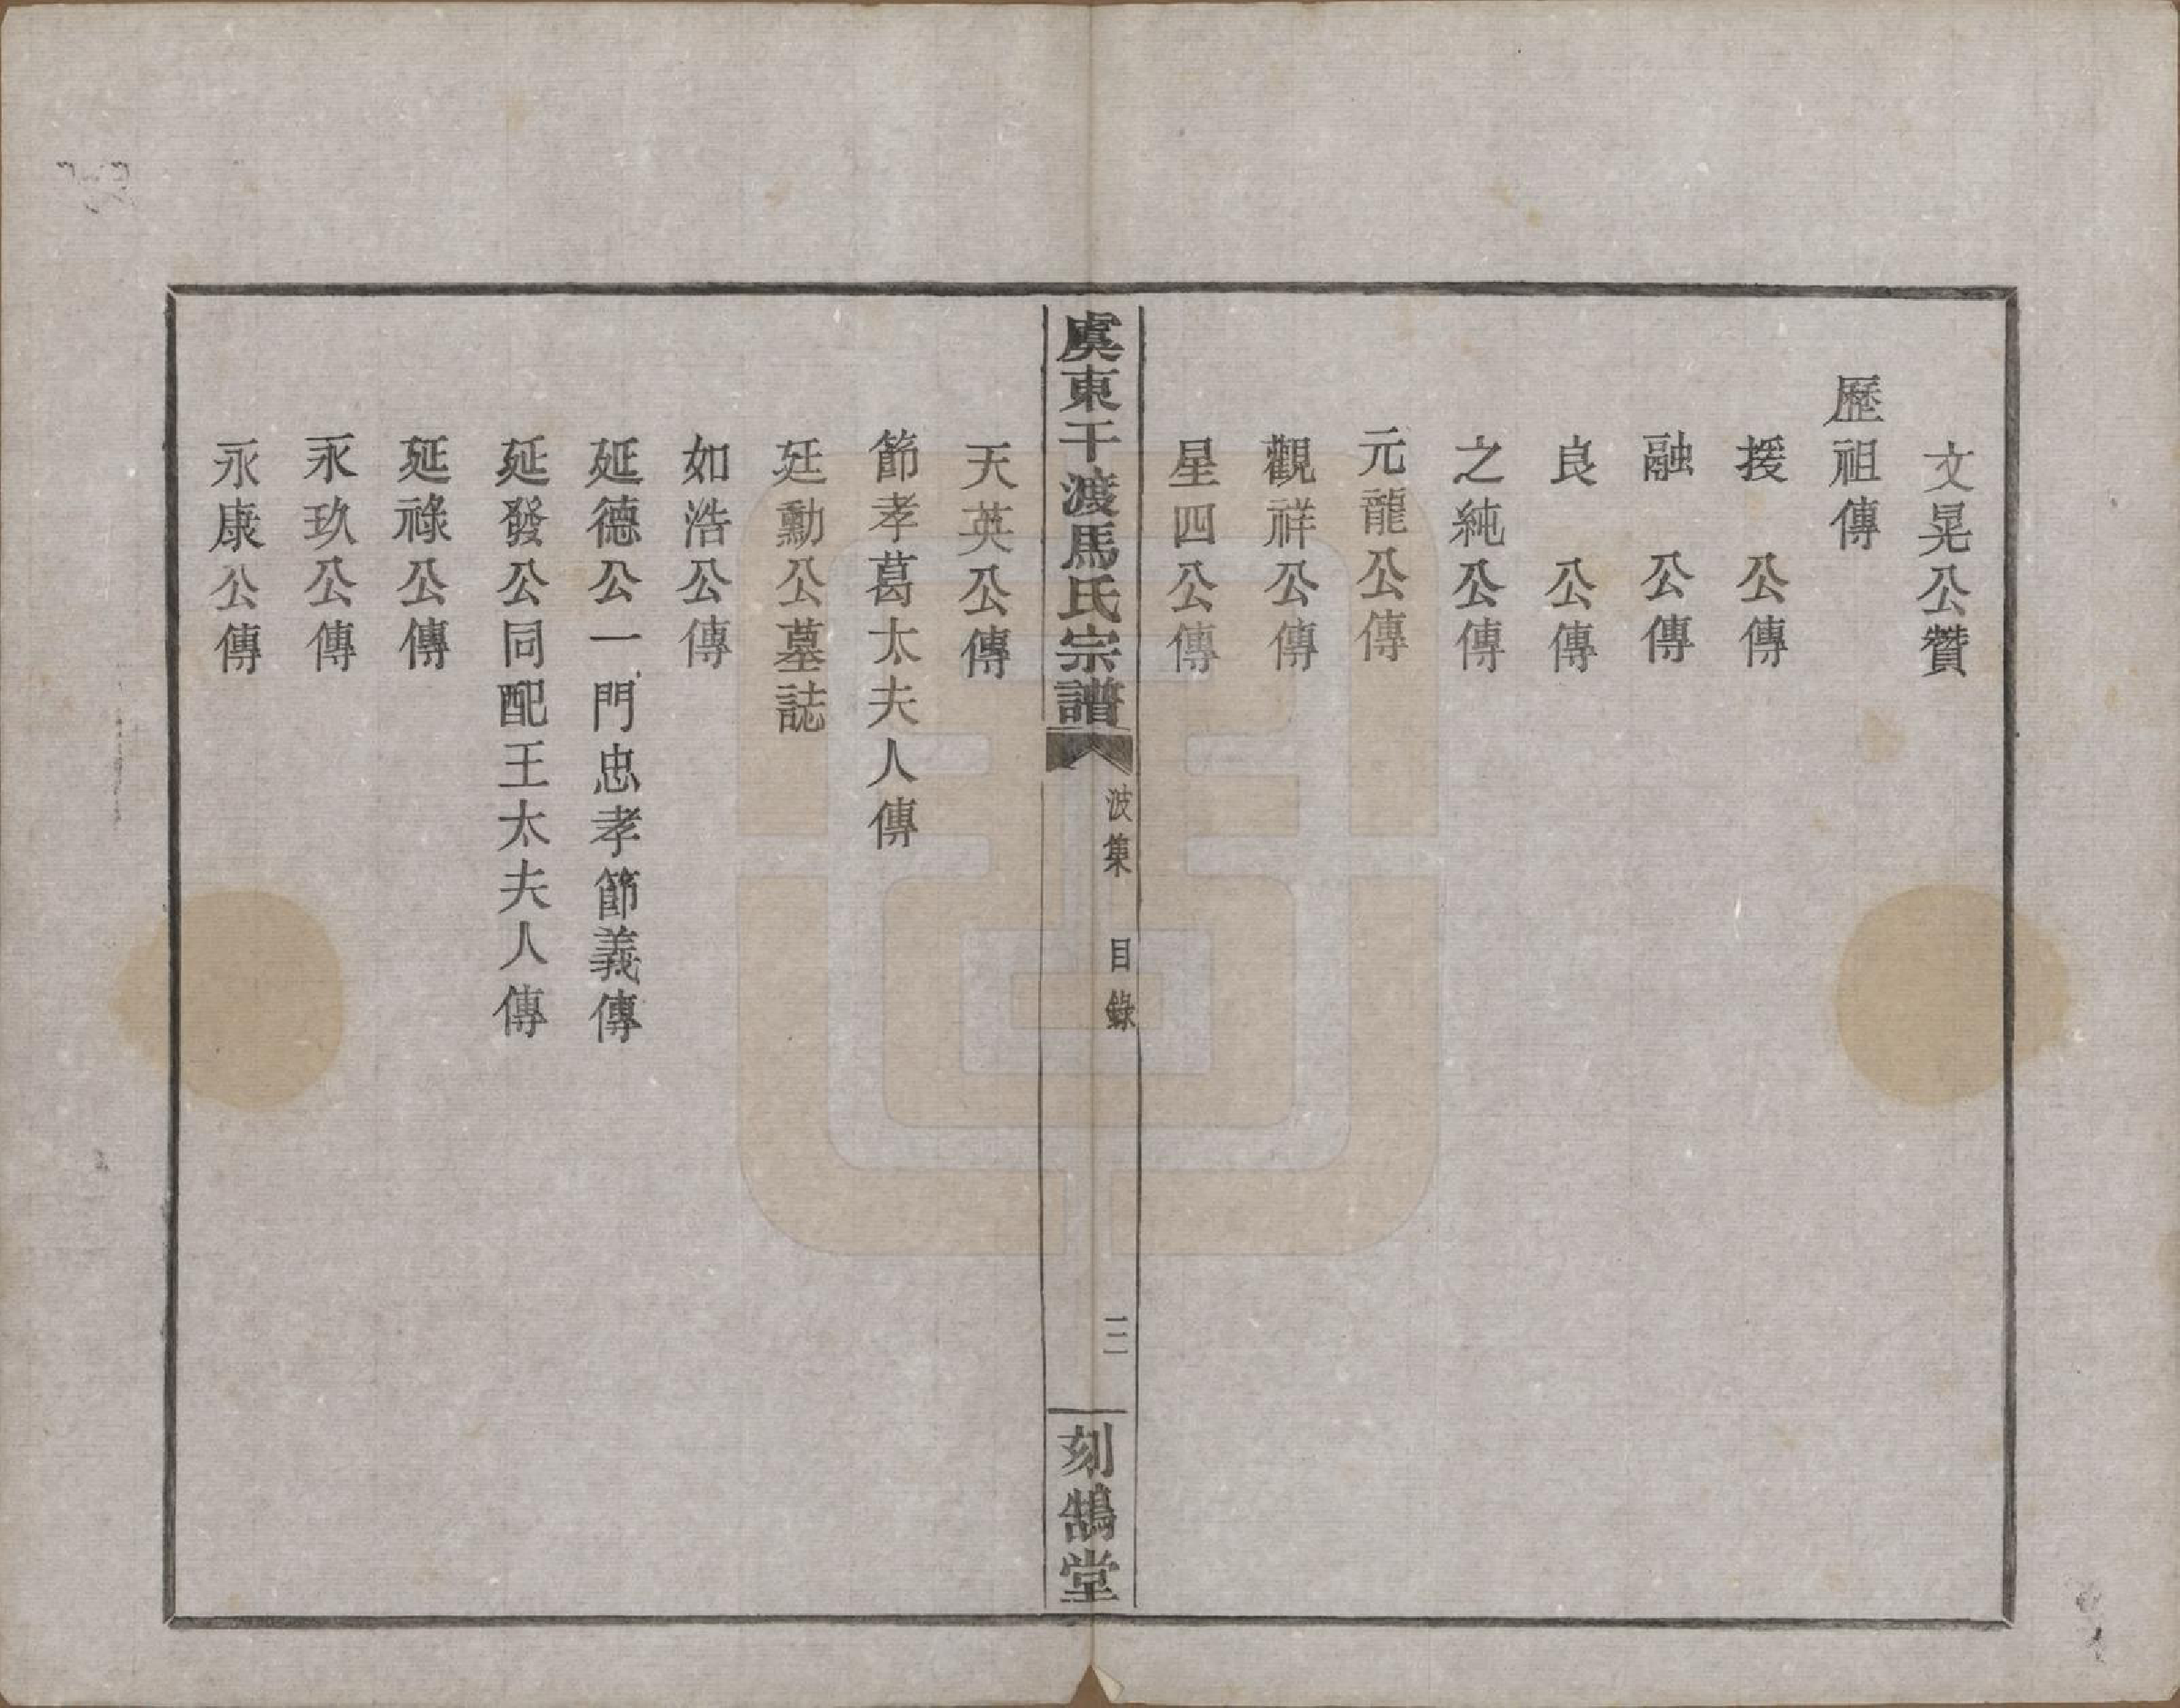 文晃公贊
歷祖傳
援 公傳
融 公傳
良 公傳
之純公傳
元龍公傳
觀祥公傳
星四公傳
虞東干渡馬氏宗譜
波集 目錄
三
刻鵠堂
天英公傳
節孝葛太夫人傳
廷勳公墓誌
如浩公傳
延德公一門忠孝節義傳
延發公同配王太夫人傳
延祿公傳
永玖公傳
永康公傳